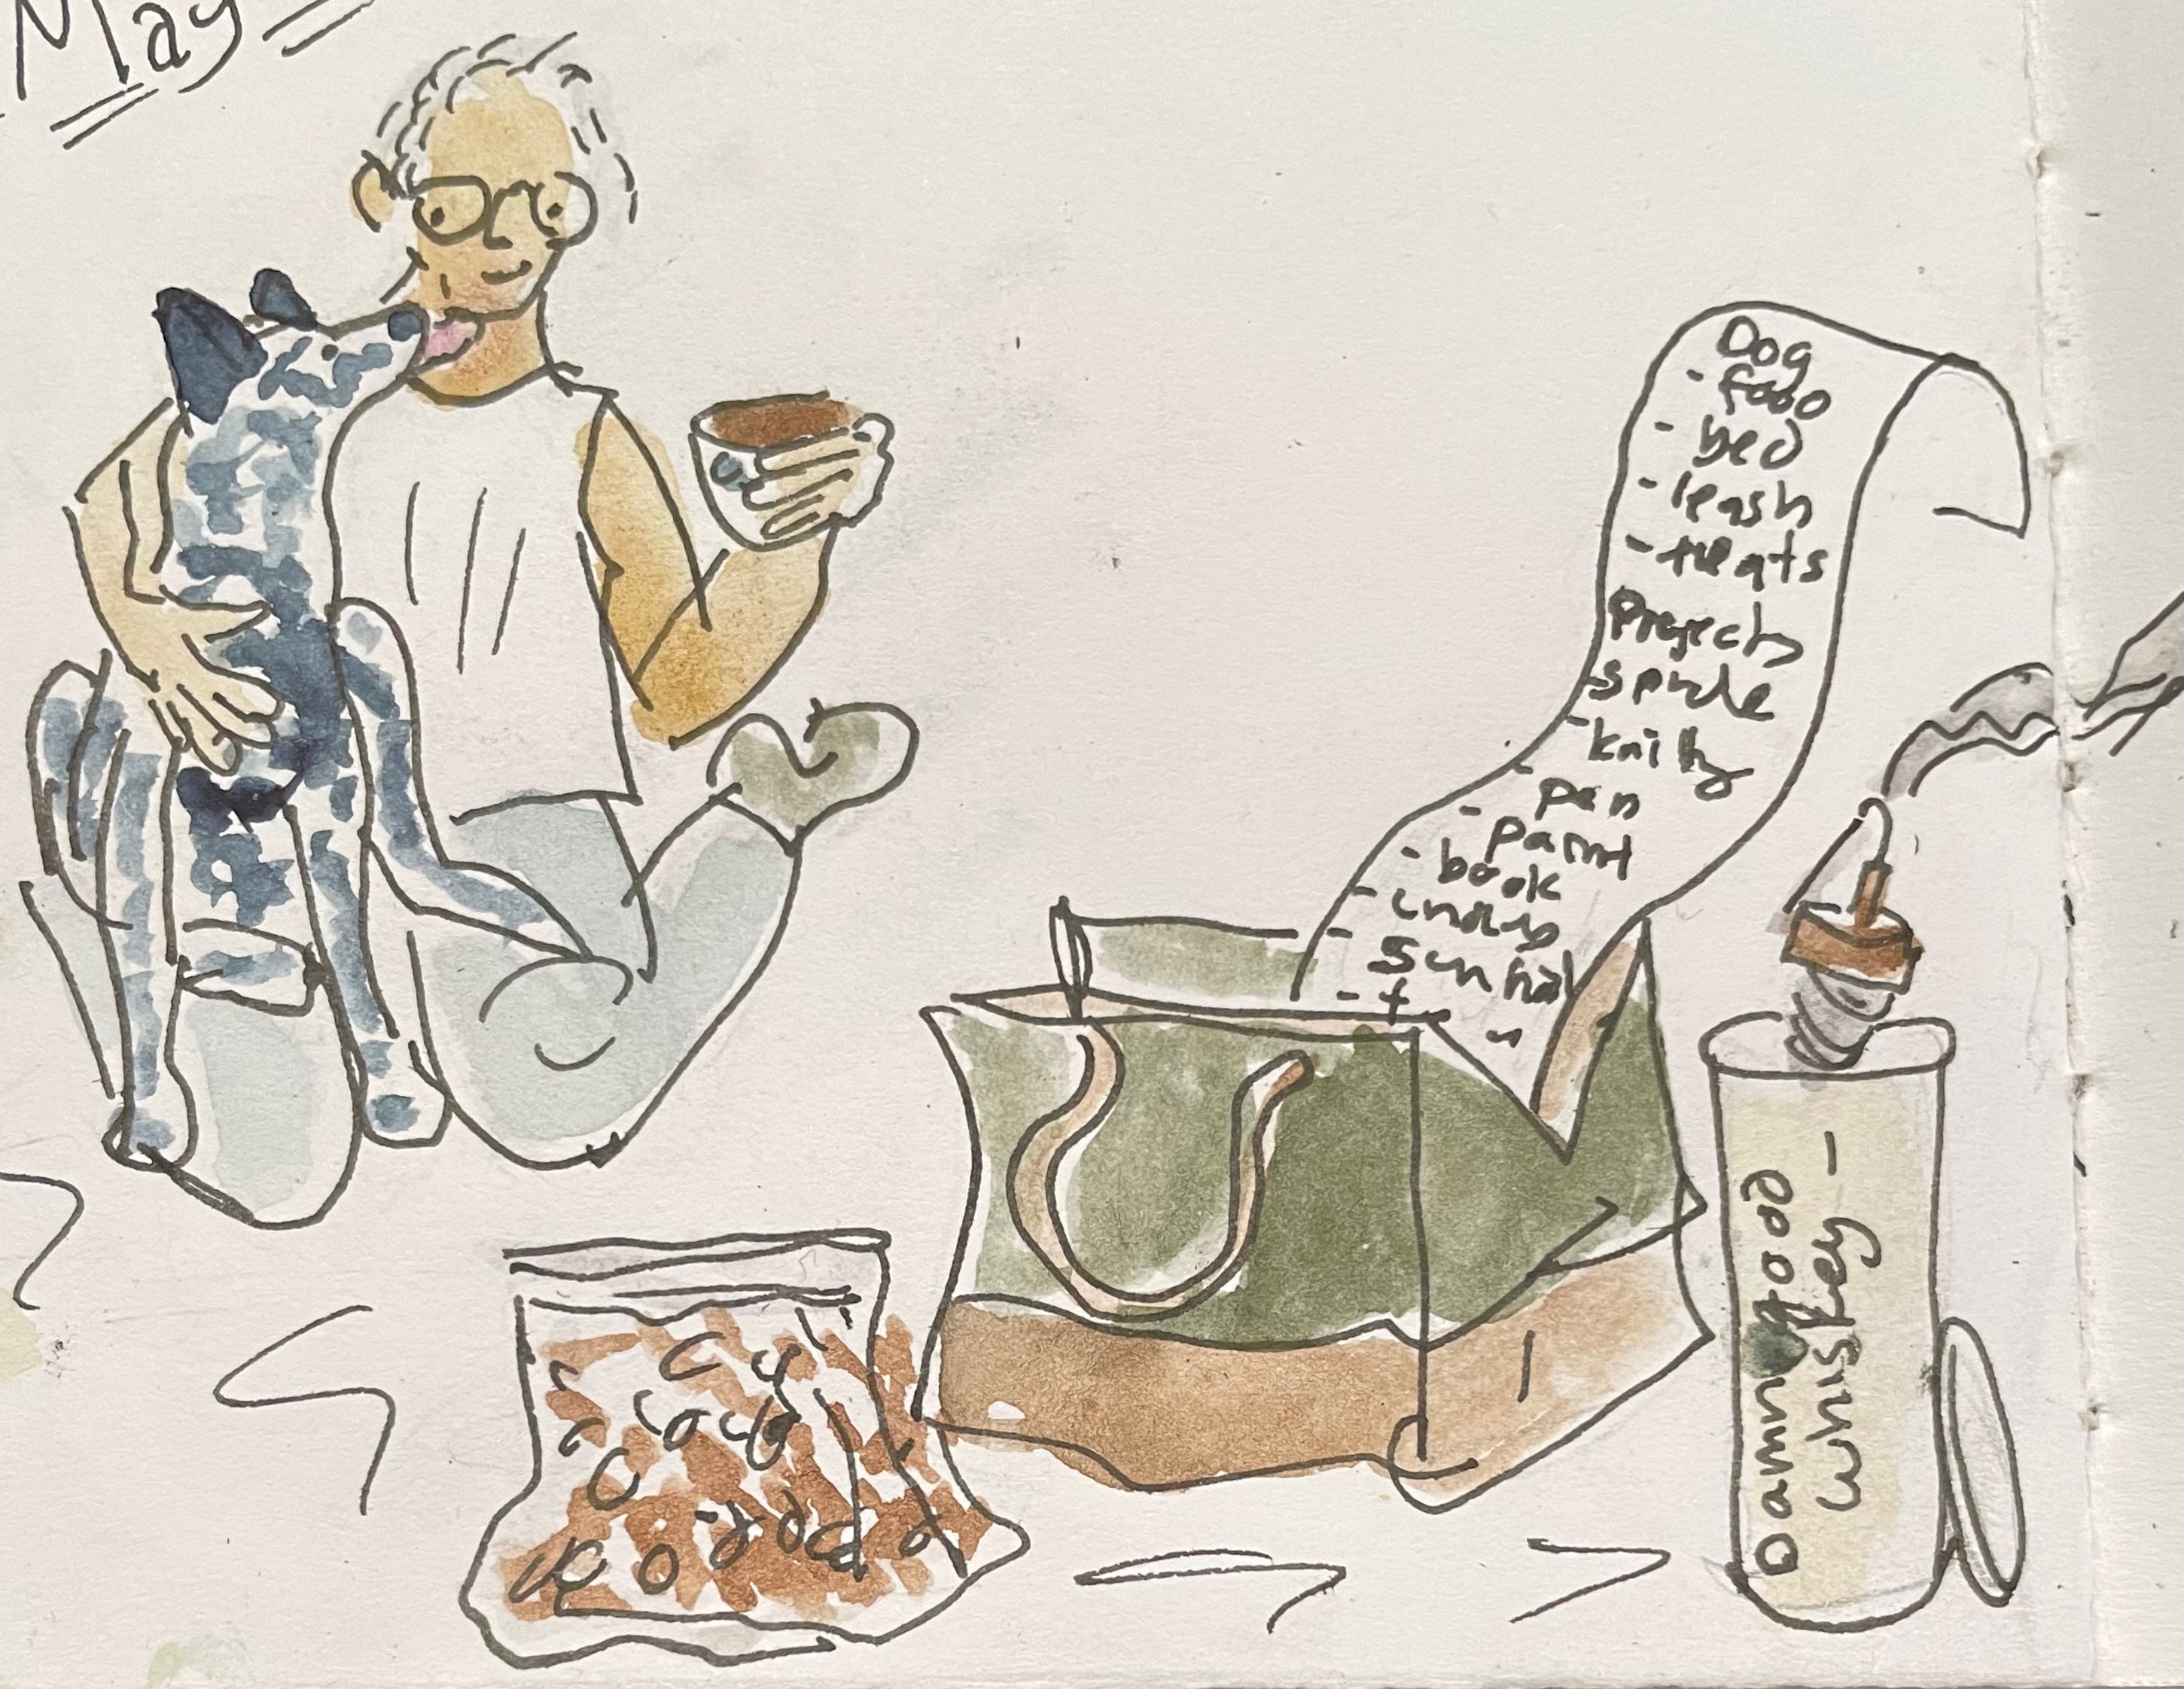 May
Dog
- food
- bed
- leash
- treats
Projects
- knittg
- pen
- paint
- book
- sun hat
Damn good
whiskey -